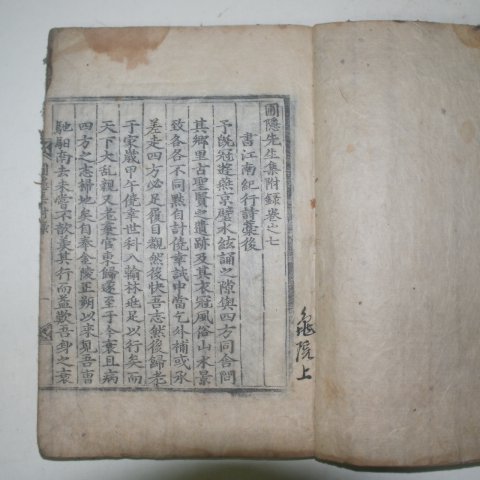 圃隱先生集附錄卷之七
書江南紀行詩藁後
予旣冠遊燕京璧水絃誦之隙與四方同舍問
其鄕里古聖賢之遺跡及其衣冠風俗山水景
致各各不同黙自計僥幸試中當乞外補或承
差走四方必足履目覩然後快吾志然後歸老
于家歲甲午僥幸世科入翰林遥足以行矣而
天下大亂親又老棄官東歸遂至于今衰且病
四方之志掃地矣自奉金陵正朔以來見吾曺
馳駬南去未嘗不歆羨其行而益歎吾身之衰
龜院上